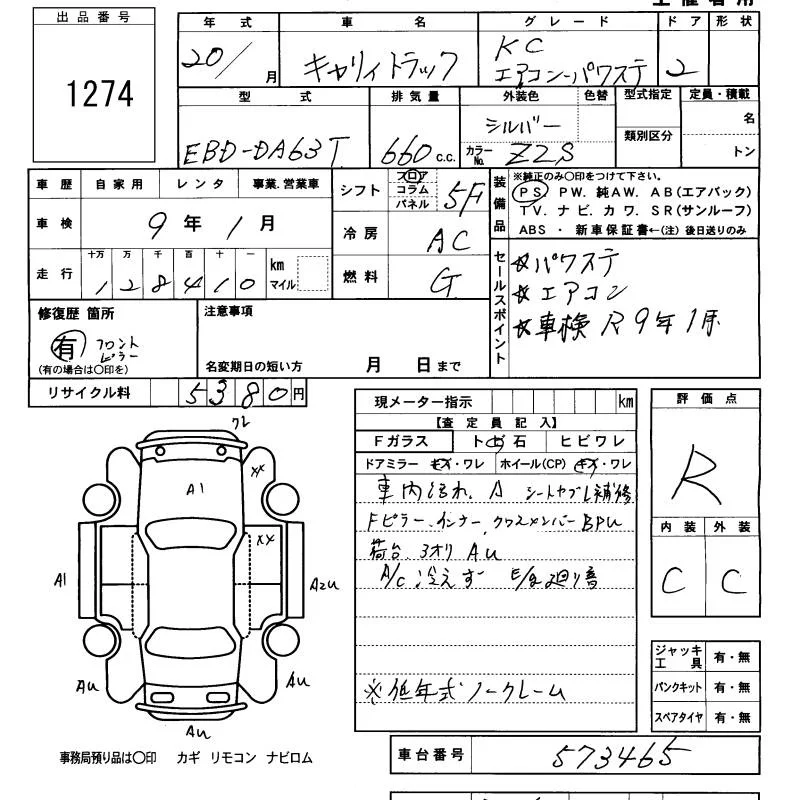 出品番号
1274
年式 車名 グレード ドア 形状
20/ 月 キャリィトラック KC エアコン-パワステ 2
型式 排気量 外装色 色替 型式指定 定員・積載
EBD-DA63T 660 c.c. シルバー 名
カラーNo. Z2S 類別区分 トン
車歴 自家用 レンタ 事業.営業車
車検 9年1月
走行 十万 万 千 百 十 一 km マイル
128410
シフト フロア コラム パネル 5F
冷房 AC
燃料 G
装備品
※純正のみ○印をつけて下さい。
PS PW. 純AW. AB(エアバック)
TV. ナビ. カワ. SR(サンルーフ)
ABS ・ 新車保証書←(注) 後日送りのみ
セールスポイント
☆パワステ
☆エアコン
☆車検 R9年1月
修復歴 箇所
有 フロントピラー
(有の場合は○印を)
注意事項
名変期日の短い方 月 日まで
リサイクル料 5380円
ワレ
A1
XX
XX
A1
A2U
AU
AU
AU
現メーター指示 km
【査定員記入】
Fガラス トビ石 ヒビワレ
ドアミラー キズ・ワレ ホイール(CP) キズ・ワレ
車内汚れ. A シートヤブレ補修
Fピラー.インナー.クロスメンバーBPU
荷台 3オリ AU
A/C 冷えず E/g廻り音
※低年式ノークレーム
評価点
R
内装 外装
C C
ジャッキ工具 有・無
パンクキット 有・無
スペアタイヤ 有・無
事務局預り品は○印 カギ リモコン ナビロム
車台番号 573465